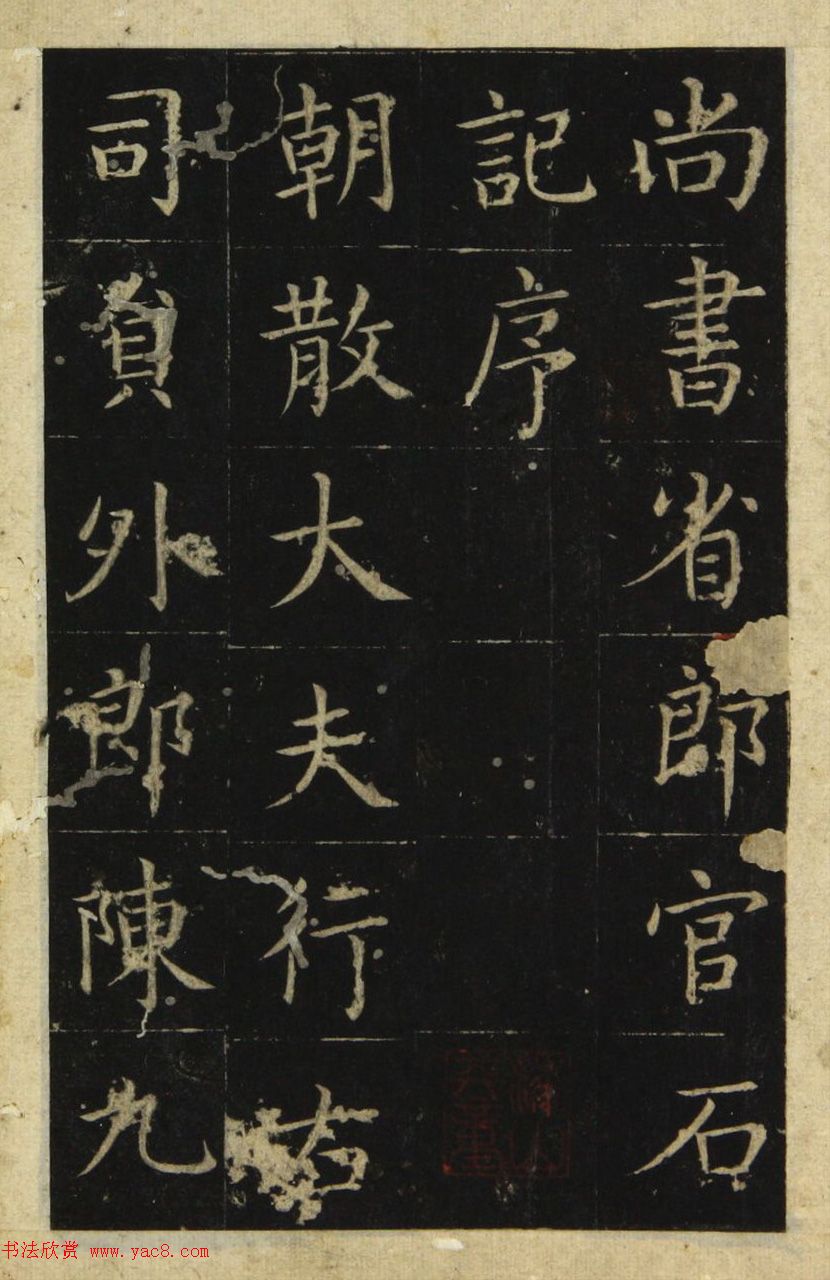 尚書省郎官石
記序
朝散大夫行右
司員外郎陳九
书法欣赏 www.yac8.com